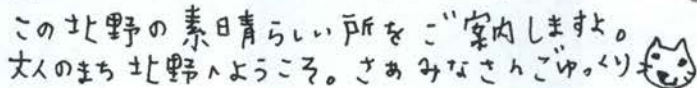 この北野の素晴らしい所をご案内しますよ。
大人のまち北野へようこそ。さあみなさんごゆっくり